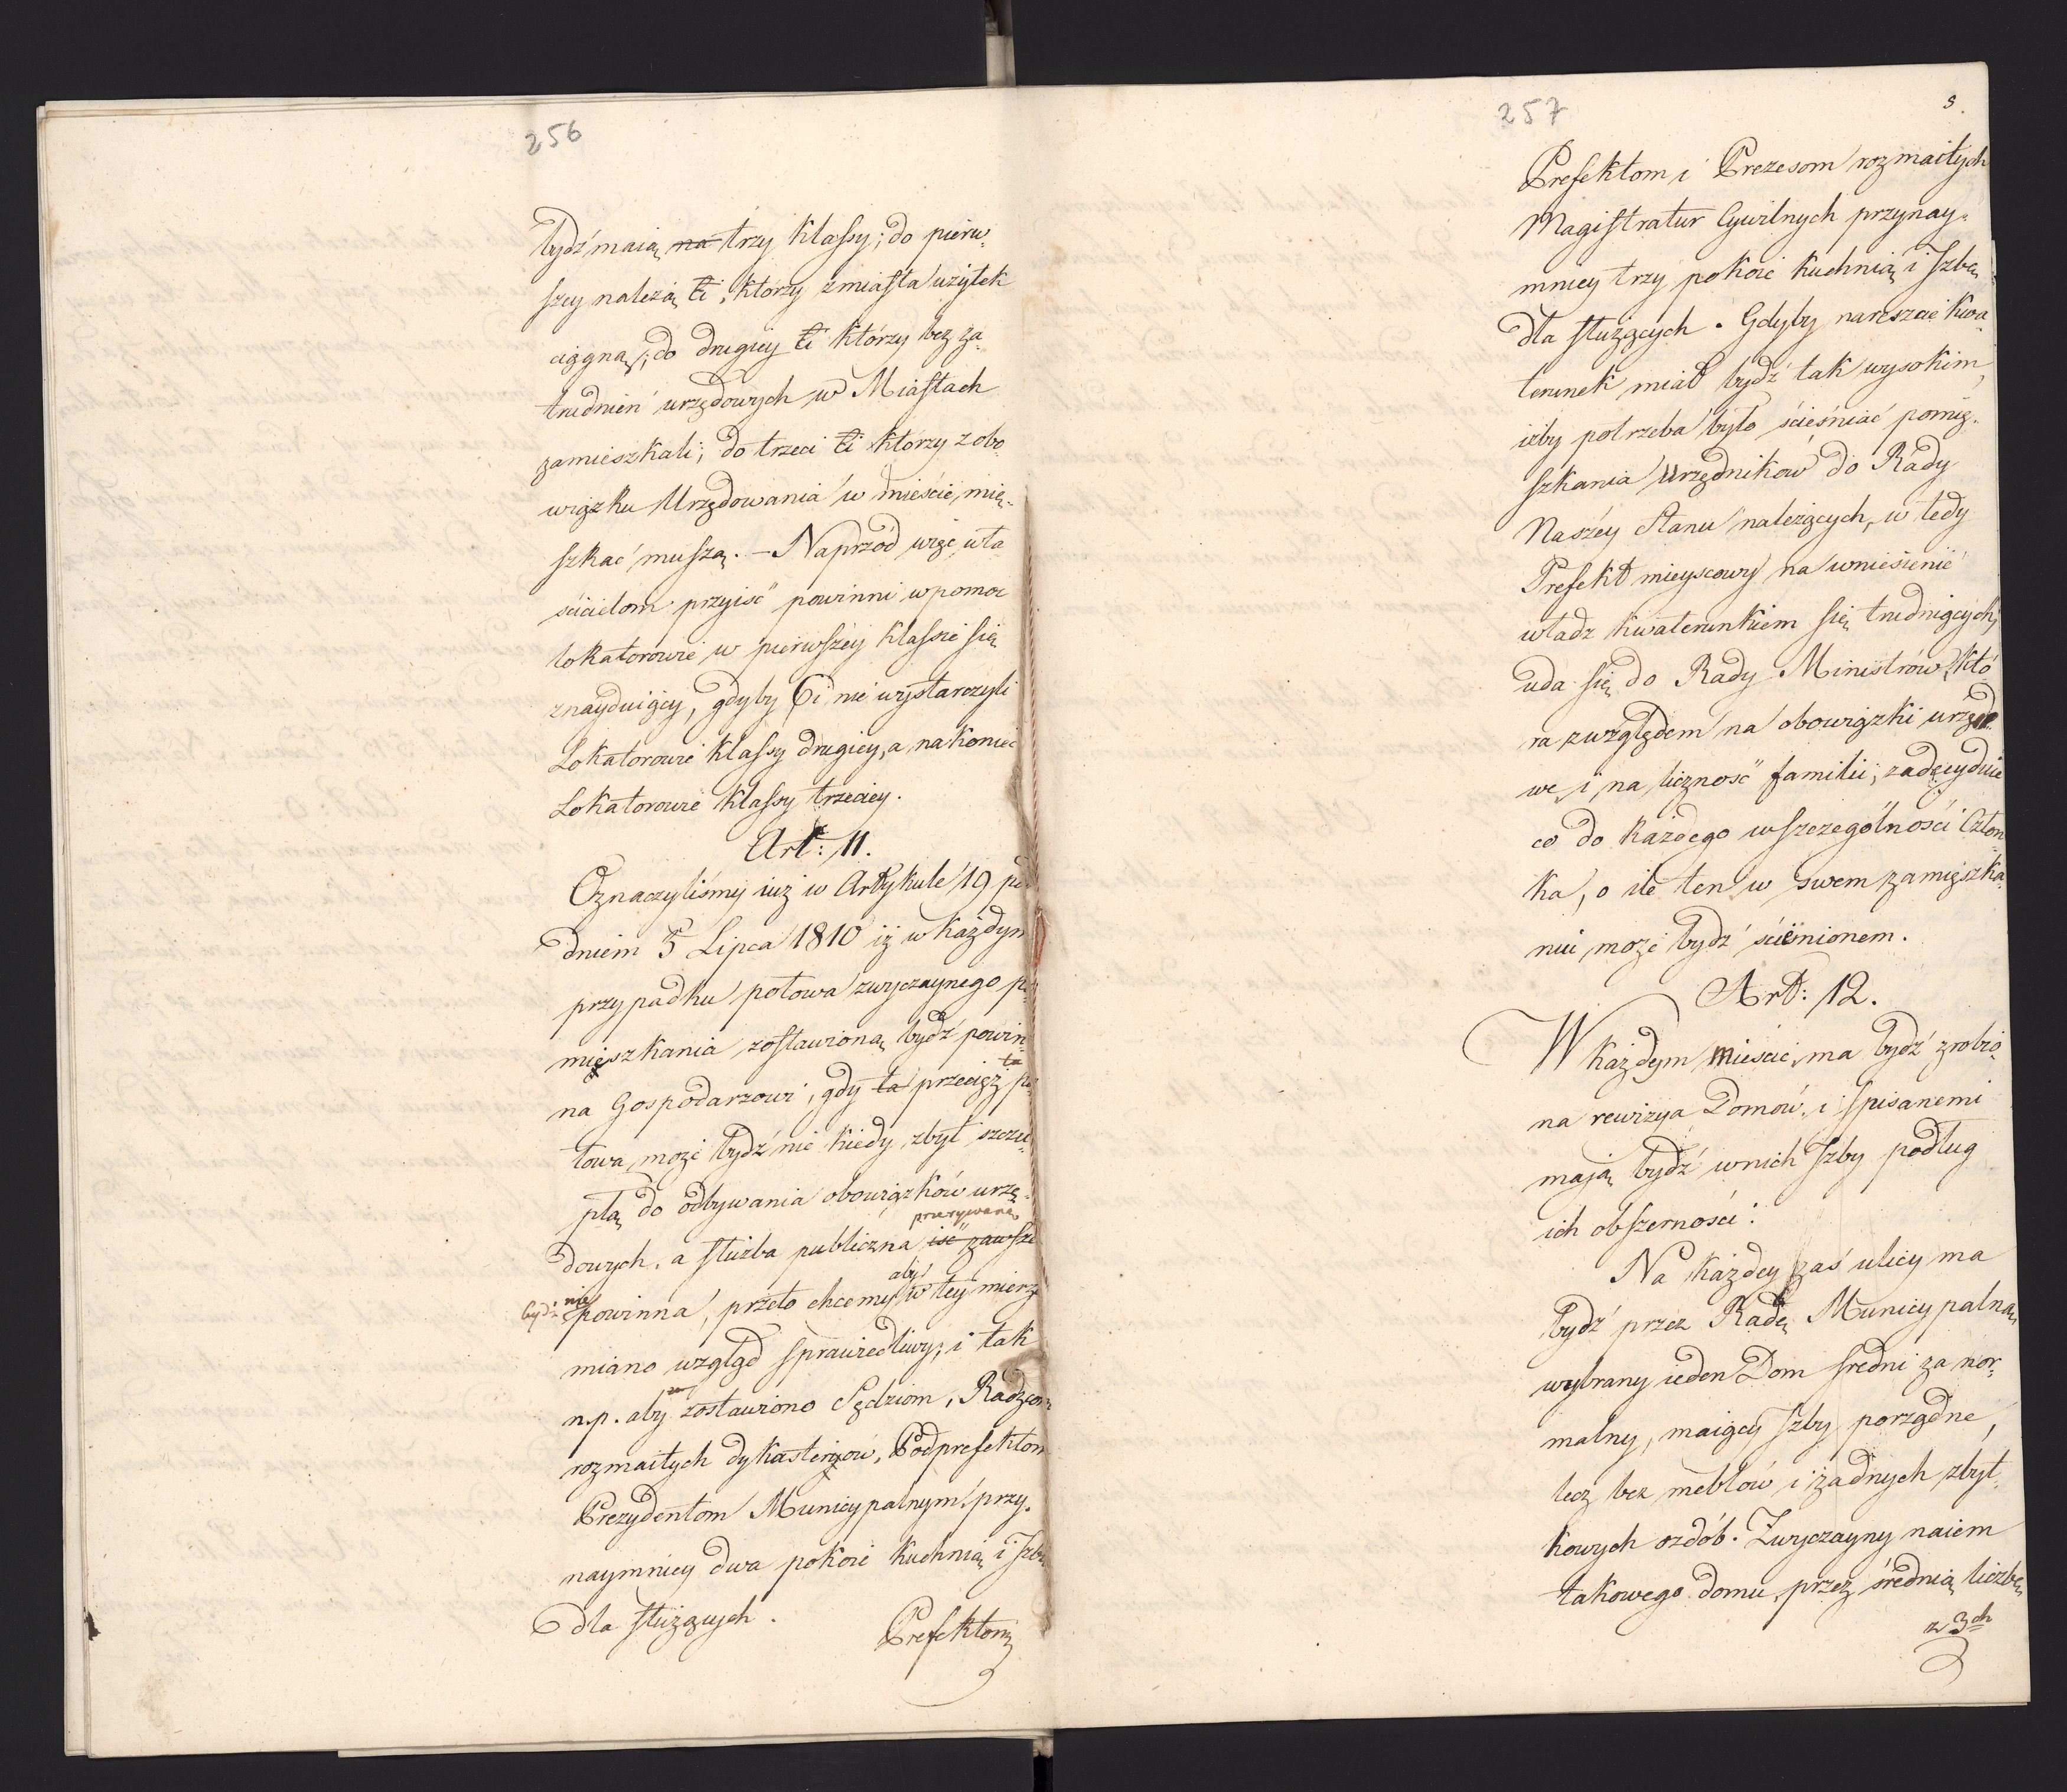 256
bydź maią na trzy Klassy; do pierw-
szey należą ti, którzy z miasta użytek
ciągną; do drugiey ti którzy bez za-
trudnień urzędowych w Miastach
zamieszkali; do trzeci ti którzy z obo-
wiązku Urzędowania w mieście mię-
szkać muszą. — Naprzód więc wła
ścicielom przyiść powinni w pomoc
lokatorowie w pierwszéy Klassie się
znayduiący, gdyby Ci nie wystarczyli
Lokatorowie Klassy drugiey, a nakoniec
Lokatorowie Klassy trzeciey.
Art: 11.
Oznaczyliśmy iuż w Artykule 19 pod
dniem 5 Lipca 1810 iż w każdym
przypadku połowa zwyczaynego po-
mięszkania zostawioną bydź powin-
na Gospodarzowi, gdy ta przeciąż ta po-
łowa może bydź nie kiedy zbyt szczu-
płą do odbywania obowiązków urzę-
dowych, a służba publiczna iść zawsze przerywaną
bydź nie powinna, przeto chcemy aby w tey mierze
miano wzgląd sprawiedliwy; i tak
n.p. aby zostawiono Sędziom, Radzcom
rozmaitych dykasteryów, Podprefektom
Prezydentom Municypalnym przy-
naymniey dwa pokoie Kuchnią i Izbę
dla służących.
Prefektom
257
5.
Prefektom i Prezesom rozmaitych
Magistratur Cywilnych przynay-
mniey trzy pokoie kuchnią i Izbę
dla służących. Gdyby nareszcie kwa-
terunek miał bydź tak wysokim,
iżby potrzeba było ścieśniać pomię-
szkania Urzędników do Rady
Naszéy Stanu należących, w tedy
Prefekt mieyscowy na wniesienie
władz kwaterunkiem się trudniących,
uda się do Rady Ministrów, któ
ra z względem na obowiązki urzędo-
we i na liczność familii, zadecyduie
co do każdego w szczególności Człon
ka, o ile ten w swem zamięszka-
niu może bydź ścieśnionem.
Art: 12.
W każdym mieście ma bydź zrobio-
na rewizya Domów, i spisanemi
mają bydź w nich Izby podług
ich obszerności.
Na każdey zaś ulicy ma
bydź przez Radę Municypalną
wybrany ieden Dom średni za nor-
malny, maiący Izby porządne,
lecz bez meblów i żadnych zbyt-
kowych ozdób. Zwyczayny naiem
takowego domu, przez średnią liczbę
z 3ch